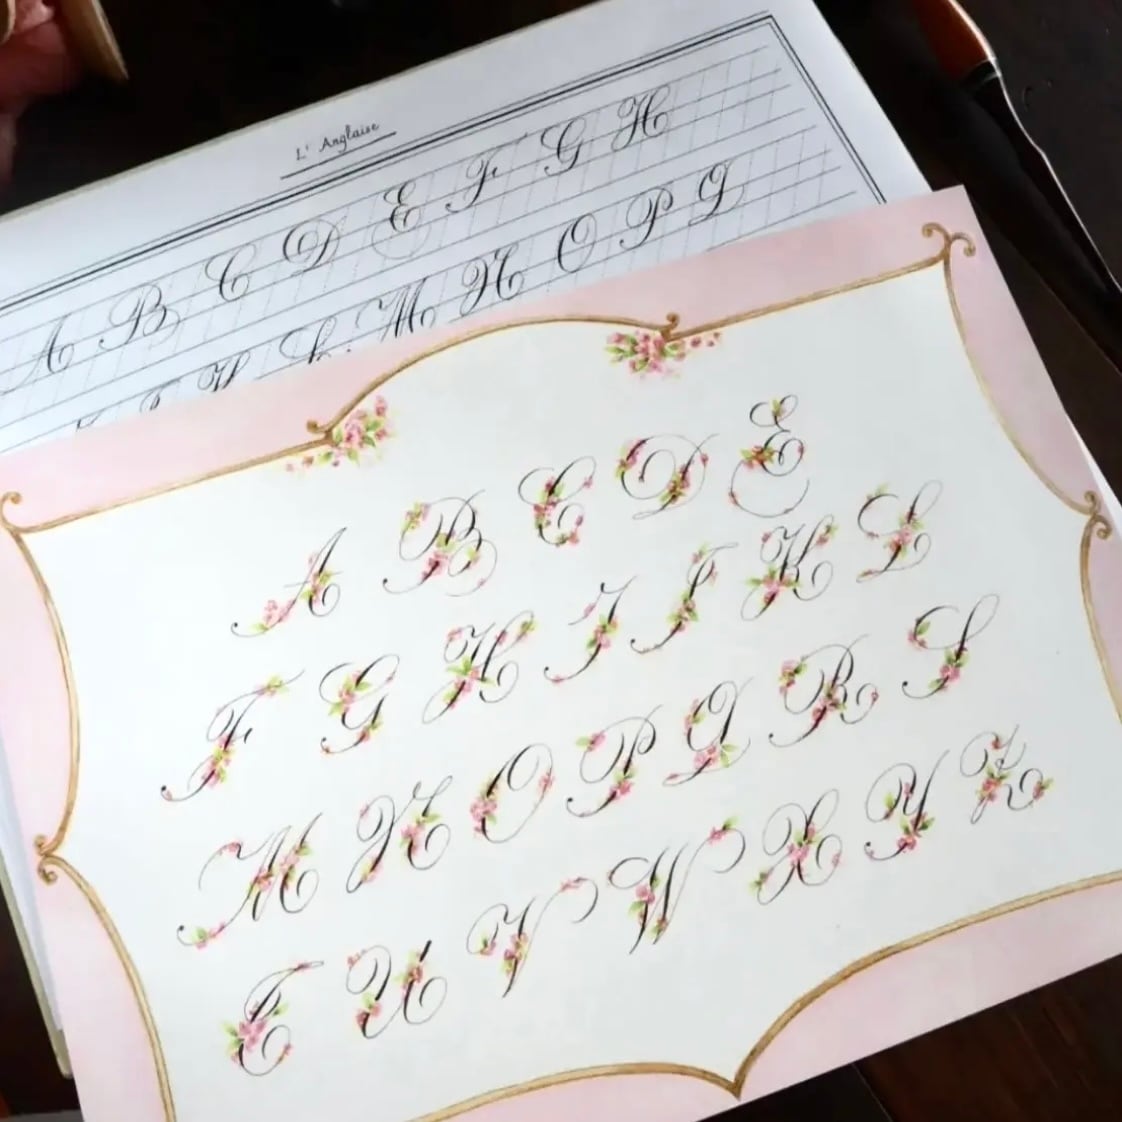 L' Anglaise
A B C D E F G H
L M N O P Q
A B C D E
F G H I J K L
M N O P Q R S
T U V W X Y Z